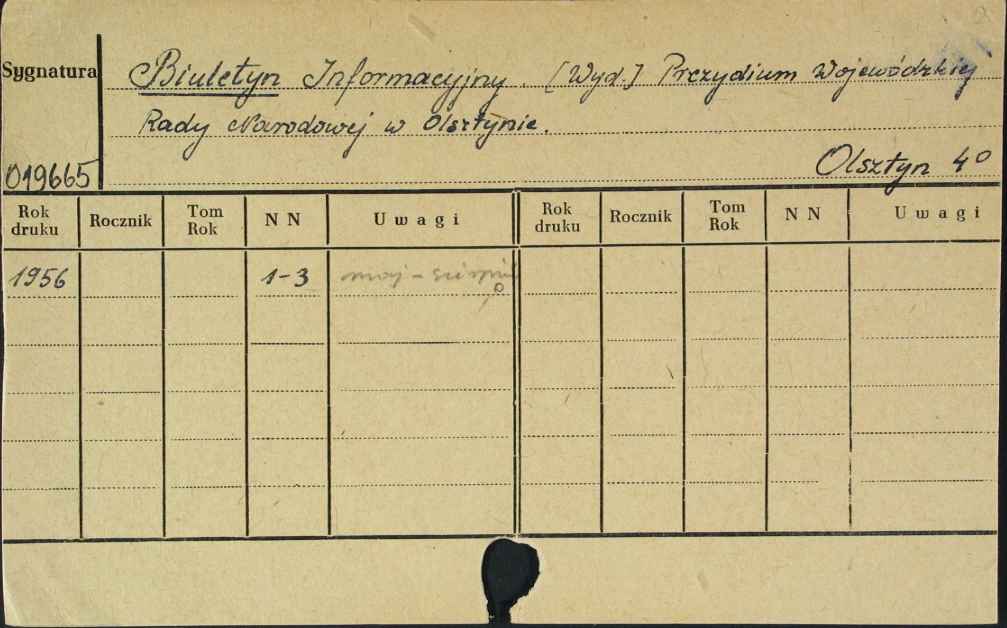 Sygnatura
Biuletyn Informacyjny. [Wyd.] Prezydium Wojewódzkiej
Rady Narodowej w Olsztynie.
019665
Olsztyn 4°
Rok druku Rocznik Tom Rok NN Uwagi Rok druku Rocznik Tom Rok NN Uwagi
1956 1-3 maj - sierpień